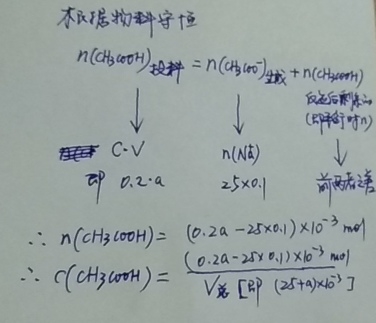 根据物料守恒
n(CH₃COOH)投料 = n(CH₃COO⁻)生成 + n(CH₃COOH)
反应后剩余的
(即平衡时n)
C·V n(Na) 前两者之差
即 0.2·a 25×0.1
∴ n(CH₃COOH) = (0.2a-25×0.1)×10⁻³ mol
∴ C(CH₃COOH) = (0.2a-25×0.1)×10⁻³ mol
V总 [即 (25+a)×10⁻³]